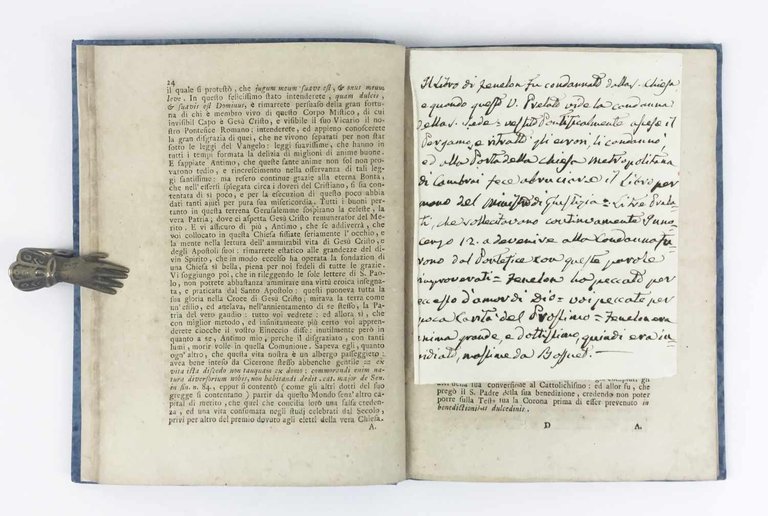 24
il quale si protestò, che jugum meum suave est, & onus meum
leve. In questo felicissimo stato intenderete, quam dulcis,
& suavis est Dominus, e rimarrete persuaso della gran fortu-
na di chi è membro vivo di questo Corpo Mistico, di cui
invisibil Capo è Gesù Cristo, e visibile il suo Vicario il no-
stro Pontefice Romano; intenderete, ed appieno conoscerete
la gran disgrazia di quei, che ne vivono separati per non star
sotto le leggi del Vangelo: leggi suavissime, che hanno in
tutti i tempi formata la delizia di miglioni di anime buone.
E sappiate Antimo, che queste sante anime non sol non pro-
varono tedio, e increscimento nella osservanza di tali leg-
gi santissime: ma refero continue grazie alla eterna Bontà,
che nell'essersi spiegata circa i doveri del Cristiano, si sia con-
tentata di sì poco, e per la esecuzione di questo poco abbia
dati tanti ajuti per pura sua misericordia. Tutti i buoni per-
tanto in questa terrena Gerusalemme sospirano la celeste, la
vera Patria; dove ci aspetta Gesù Cristo remunerator del Me-
rito. E vi assicuro di più, Antimo, che se addiverrà, che
voi collocato in questa Chiesa fissiate seriamente l'occhio, e
la mente nella lettura dell'ammirabil vita di Gesù Cristo, e
degli Apostoli suoi: rimarrete estatico alle grandezze del di-
vin Spirito, che in modo eccelso ha operata la fondazion di
una Chiesa sì bella, piena per noi fedeli di tutte le grazie.
Vi soggiungo poi, che in rileggendo le sole lettere di S. Pao-
lo, non potrete abbastanza ammirare una virtù eroica insegna-
ta, e praticata dal Santo Apostolo: questi poneva tutta la
sua gloria nella Croce di Gesù Cristo; mirava la terra come
un'esilio, ed anelava, nell'annientamento di se stesso, la Pa-
tria del vero gaudio: tutto voi vedrete: ed allora sì, che
con miglior metodo, ed infinitamente più certo voi appren-
derete ciocchè il vostro Eineccio disse: inutilmente però in
quanto a se, Antimo mio, perchè il disgraziato, con tanti
lumi, morir volle in quella Comunione. Sapeva egli, quanto
ogn'altro, che questa vita nostra è un albergo passeggiero:
avea bene inteso da Cicerone stesso abbenchè gentile = ex
vita ista discedo non tanquam ex domo: commorandi enim na-
tura diversorium nobis, non habitandi dedit. cat. major de Sen.
in fin. n. 84., eppur si contentò (come gli altri dotti del suo
gregge si contentano) partir da questo Mondo senz'altro ca-
pital di merito, che quel che concilia loro una falsa creden-
za, ed una vita consumata negli studj celebrati dal Secolo,
privi per altro del premio dovuto agli eletti della vera Chiesa.
A.
Il libro di Fenelon fu condannato dalla S. Chiesa,
e quando questo V. Prelato vide la condanna
della S. Sede = vestito Pontificalmente ascese il
Pergamo, e ritrattò gli errori, li condannò,
ed alla Porta della Chiesa Metropolitana
di Cambrai fece abruciare il libro per
mano del Ministro di Giustizia = Li tre Prela-
ti, che sollecitavano continuamente Inno-
cenzo 12. a devenire alla Condanna fu-
rono dal Pontefice con queste parole
improverati = Fenelon ha peccato per
eccesso d'amor di Dio = voi peccate per
poca Carità del Prossimo = Fenelon era
anima grande, e dottissimo, quindi era in-
vidiato, massime da Bossuet. —
della sua conversione al Cattolichismo: ed allor fu, che
pregò il S. Padre della sua benedizione, credendo non poter
porre sulla Testa sua la Corona prima di esser prevenuto in
benedictionibus dulcedinis.
D
A.